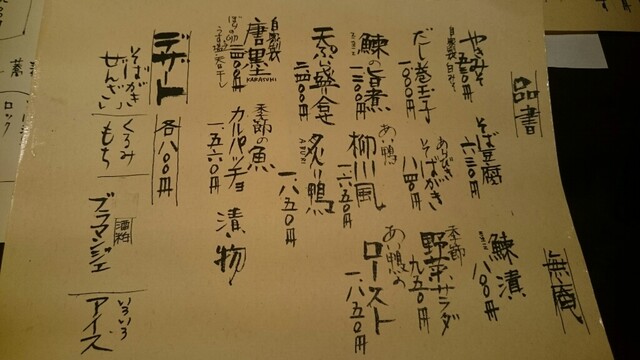 品書
無庵
やきみそ 五五〇円
自家製白みそ
そば豆腐 六三〇円
鰊漬 八〇〇円
だし巻玉子 一〇〇〇円
あらびき
そばがき 八四〇円
季節
野菜サラダ 九五〇円
鰊の旨煮 一三〇〇円
あい鴨
柳川風 一六五〇円
あい鴨の
ロースト 一八五〇円
天ぷら盛合 二四〇〇円
炙り鴨 一八五〇円
ABURI
自家製
唐墨 二四〇〇円
KARASUMI
季節の魚
カルパッチョ 一五六〇円
漬物
デザート 各八〇〇円
そばがき
ぜんざい
くるみ
もち
酒粕
ブラマンジェ
いろいろ
アイス
ロック